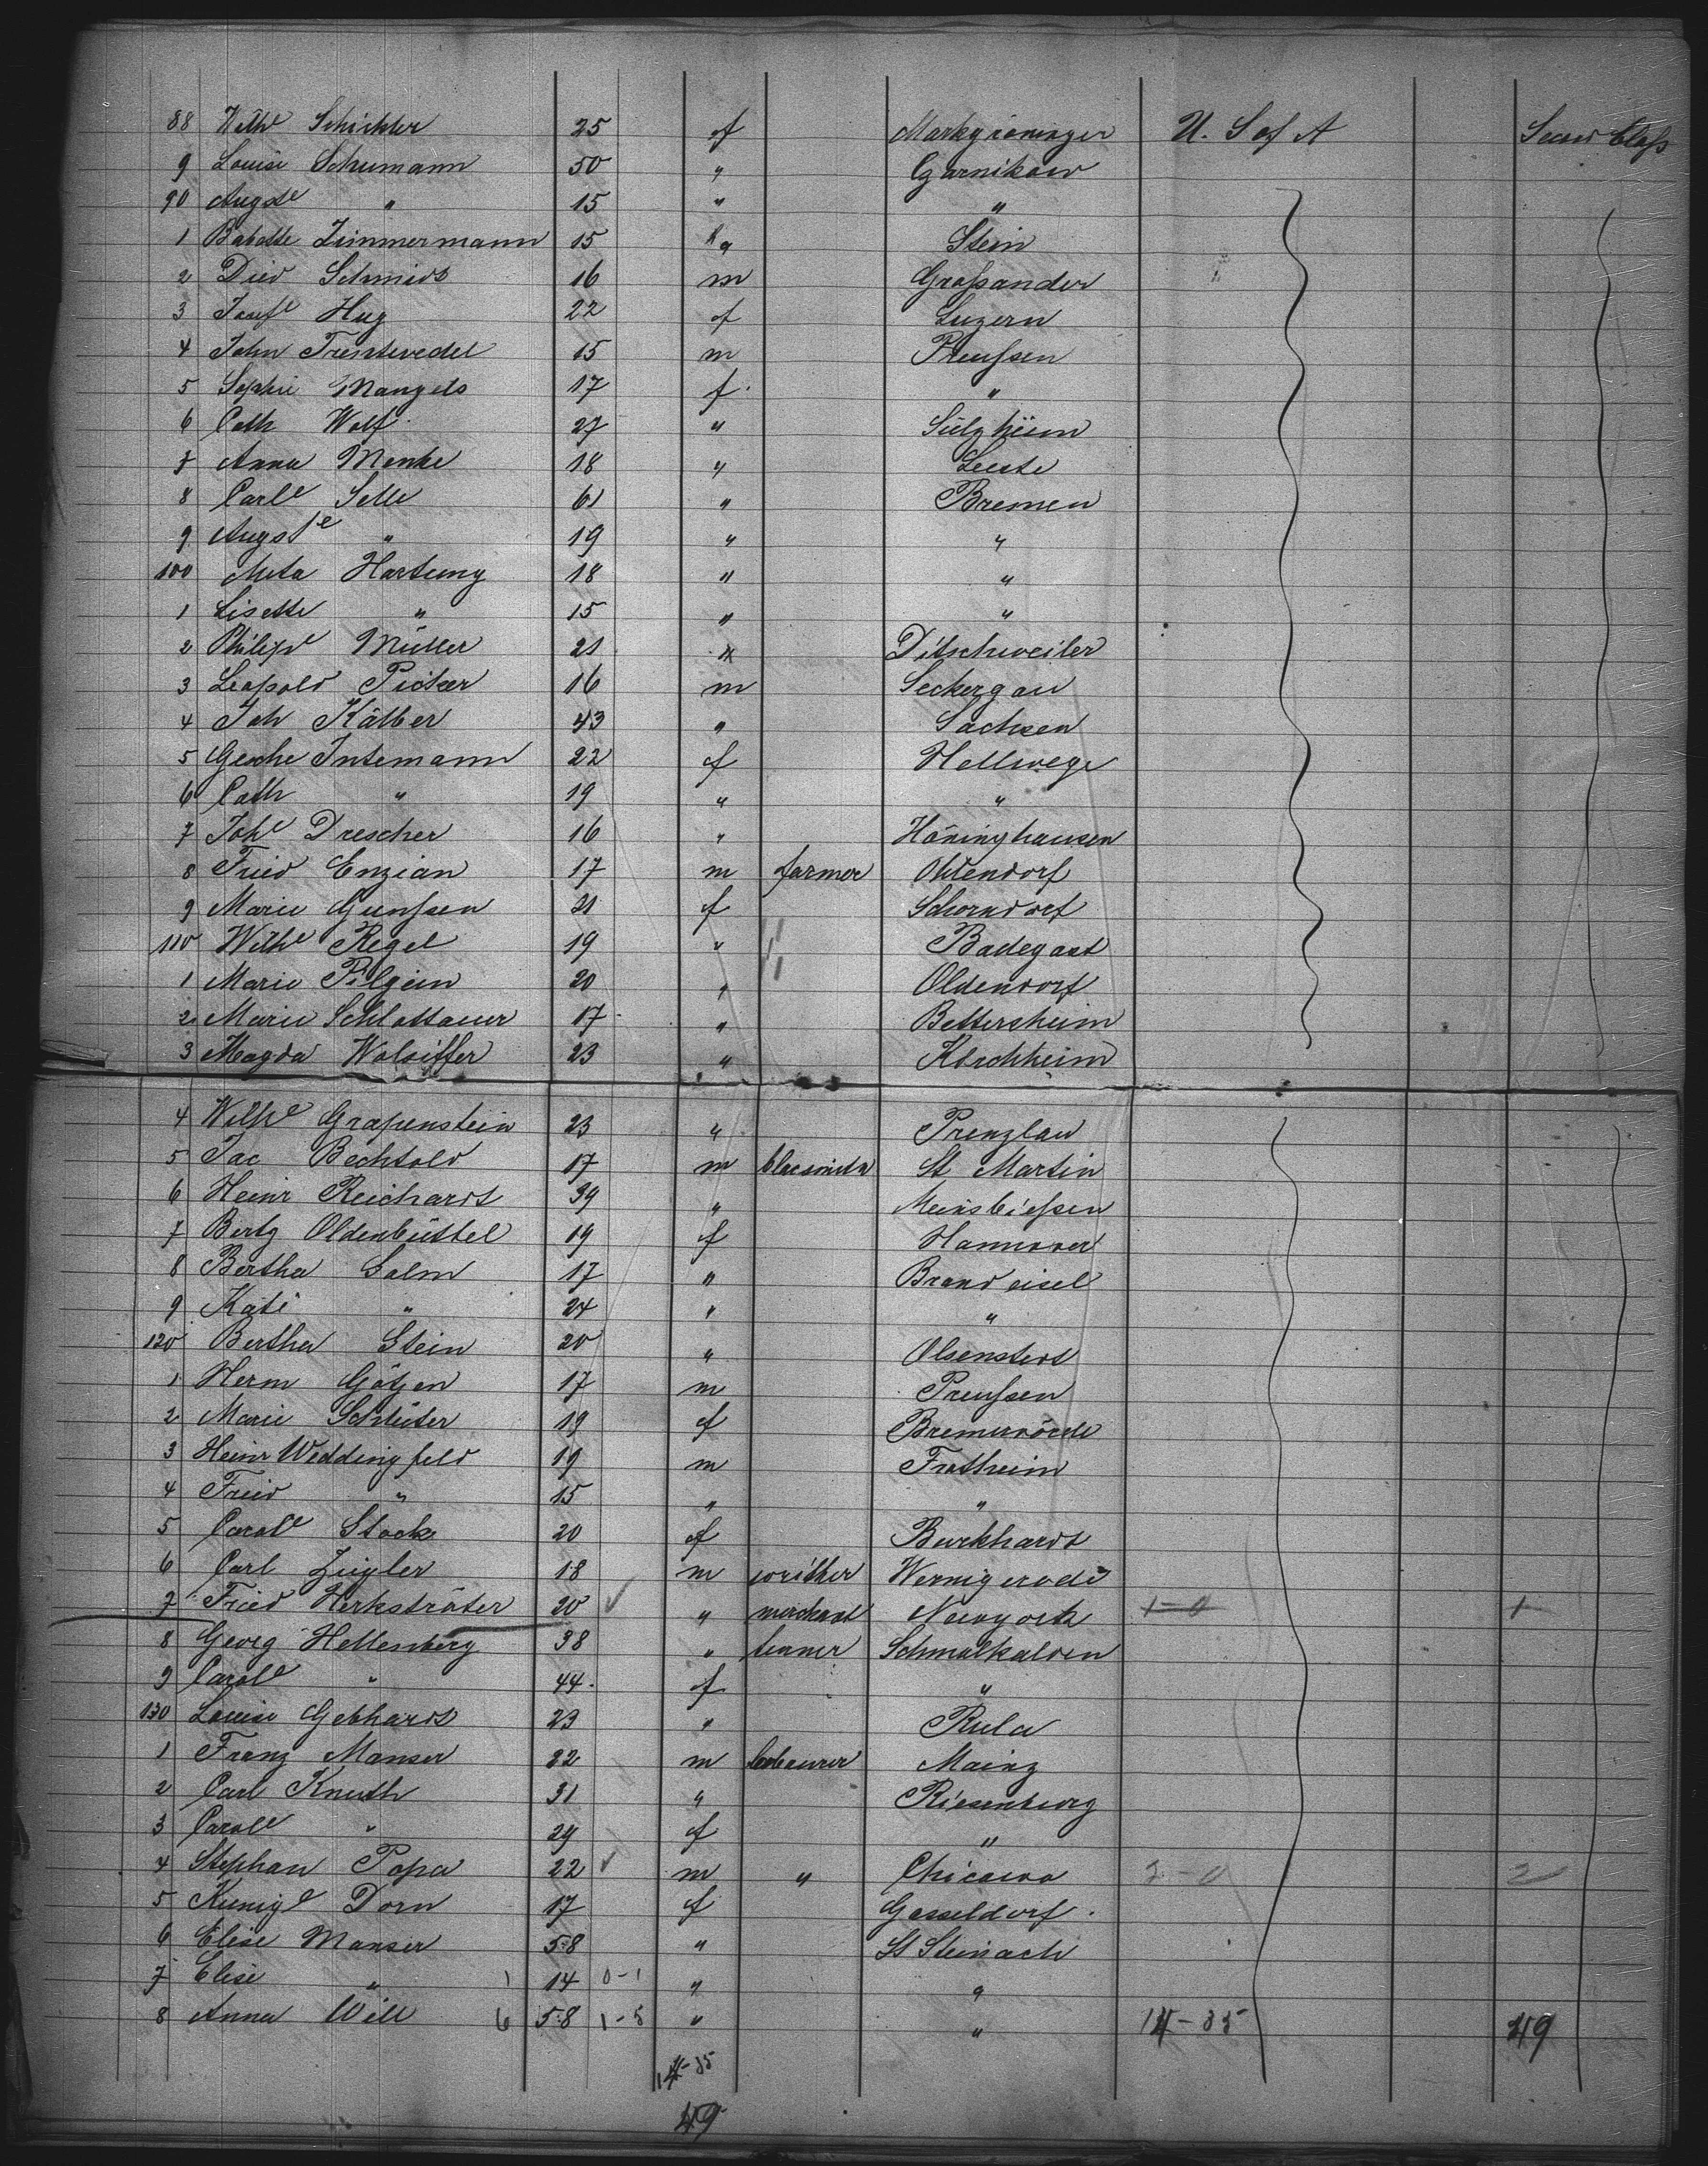 88 Wilhe Schickler 25 f Markgröninger U. S of A Second Class
9 Louise Schumann 50 " Czarnikow
90 Augste " 15 " "
1 Babette Zimmermann 15 " Stein
2 Died Schmidt 16 m Grossander
3 Josefe Hug 22 f Luzern
4 John Trentwedel 15 m Preussen
5 Sophie Mangels 17 f "
6 Cath Wolf 27 " Sülzheim
7 Anna Menke 18 " Leeste
8 Carle Selle 61 " Bremen
9 Augste " 19 " "
100 Meta Hartung 18 " "
1 Lisette " 15 " "
2 Philippe Müller 21 " Ditschweiler
3 Leopold Picker 16 m Seckergau
4 Joh Kälber 43 " Sachsen
5 Gesche Intemann 22 f Hellwege
6 Cath " 19 " "
7 Johe Drescher 16 " Höninghausen
8 Fried Enzian 17 m farmer Ohlendorf
9 Marie Gunssen 21 f Schorndorf
110 Wilhe Regel 19 " Badegast
1 Marie Pilgein 20 " Oldendorf
2 Marie Schlottauer 17 " Bettersheim
3 Magda Wolsiffer 23 " Kirchheim
4 Wilhe Grapenstein 23 " Prenzlau
5 Jac Bechtold 17 m St Martin
6 Heinr Reichardt 39 "
7 Bertg Oldenbüttel 19 f Hannover
8 Bertha Salm 17 " Brandeisel
9 Kati " 24 " "
120 Bertha Stein 20 " Olsenstedt
1 Herm Götzen 17 m Preussen
2 Marie Schlüter 19 f Bremervörde
3 Heinr Weddingfeld 19 m Frotheim
4 Fried " 15 " "
5 Carole Stock 20 f Burkhardt
6 Carl Zeigler 18 m Wernigerode
7 Fried Herksträter 20 " merchant Newyork 1-0 1
8 Georg Hellenberg 38 " tanner Schmalkalden
9 Carole " 44 f "
130 Louise Gebhardt 23 " Rula
1 Franz Manser 22 m Mainz
2 Carl Knuth 31 " Riesenburg
3 Carole " 29 f "
4 Stephan Popa 22 m " Chicawo 2-0 2
5 Kunige Dorn 17 f Gasseldorf
6 Elise Manser 58 " St Steinach
7 Elise " 1 14 0-1 " "
8 Anna Will 6 5.8 1-5 " " 14-35 49
14-35
49